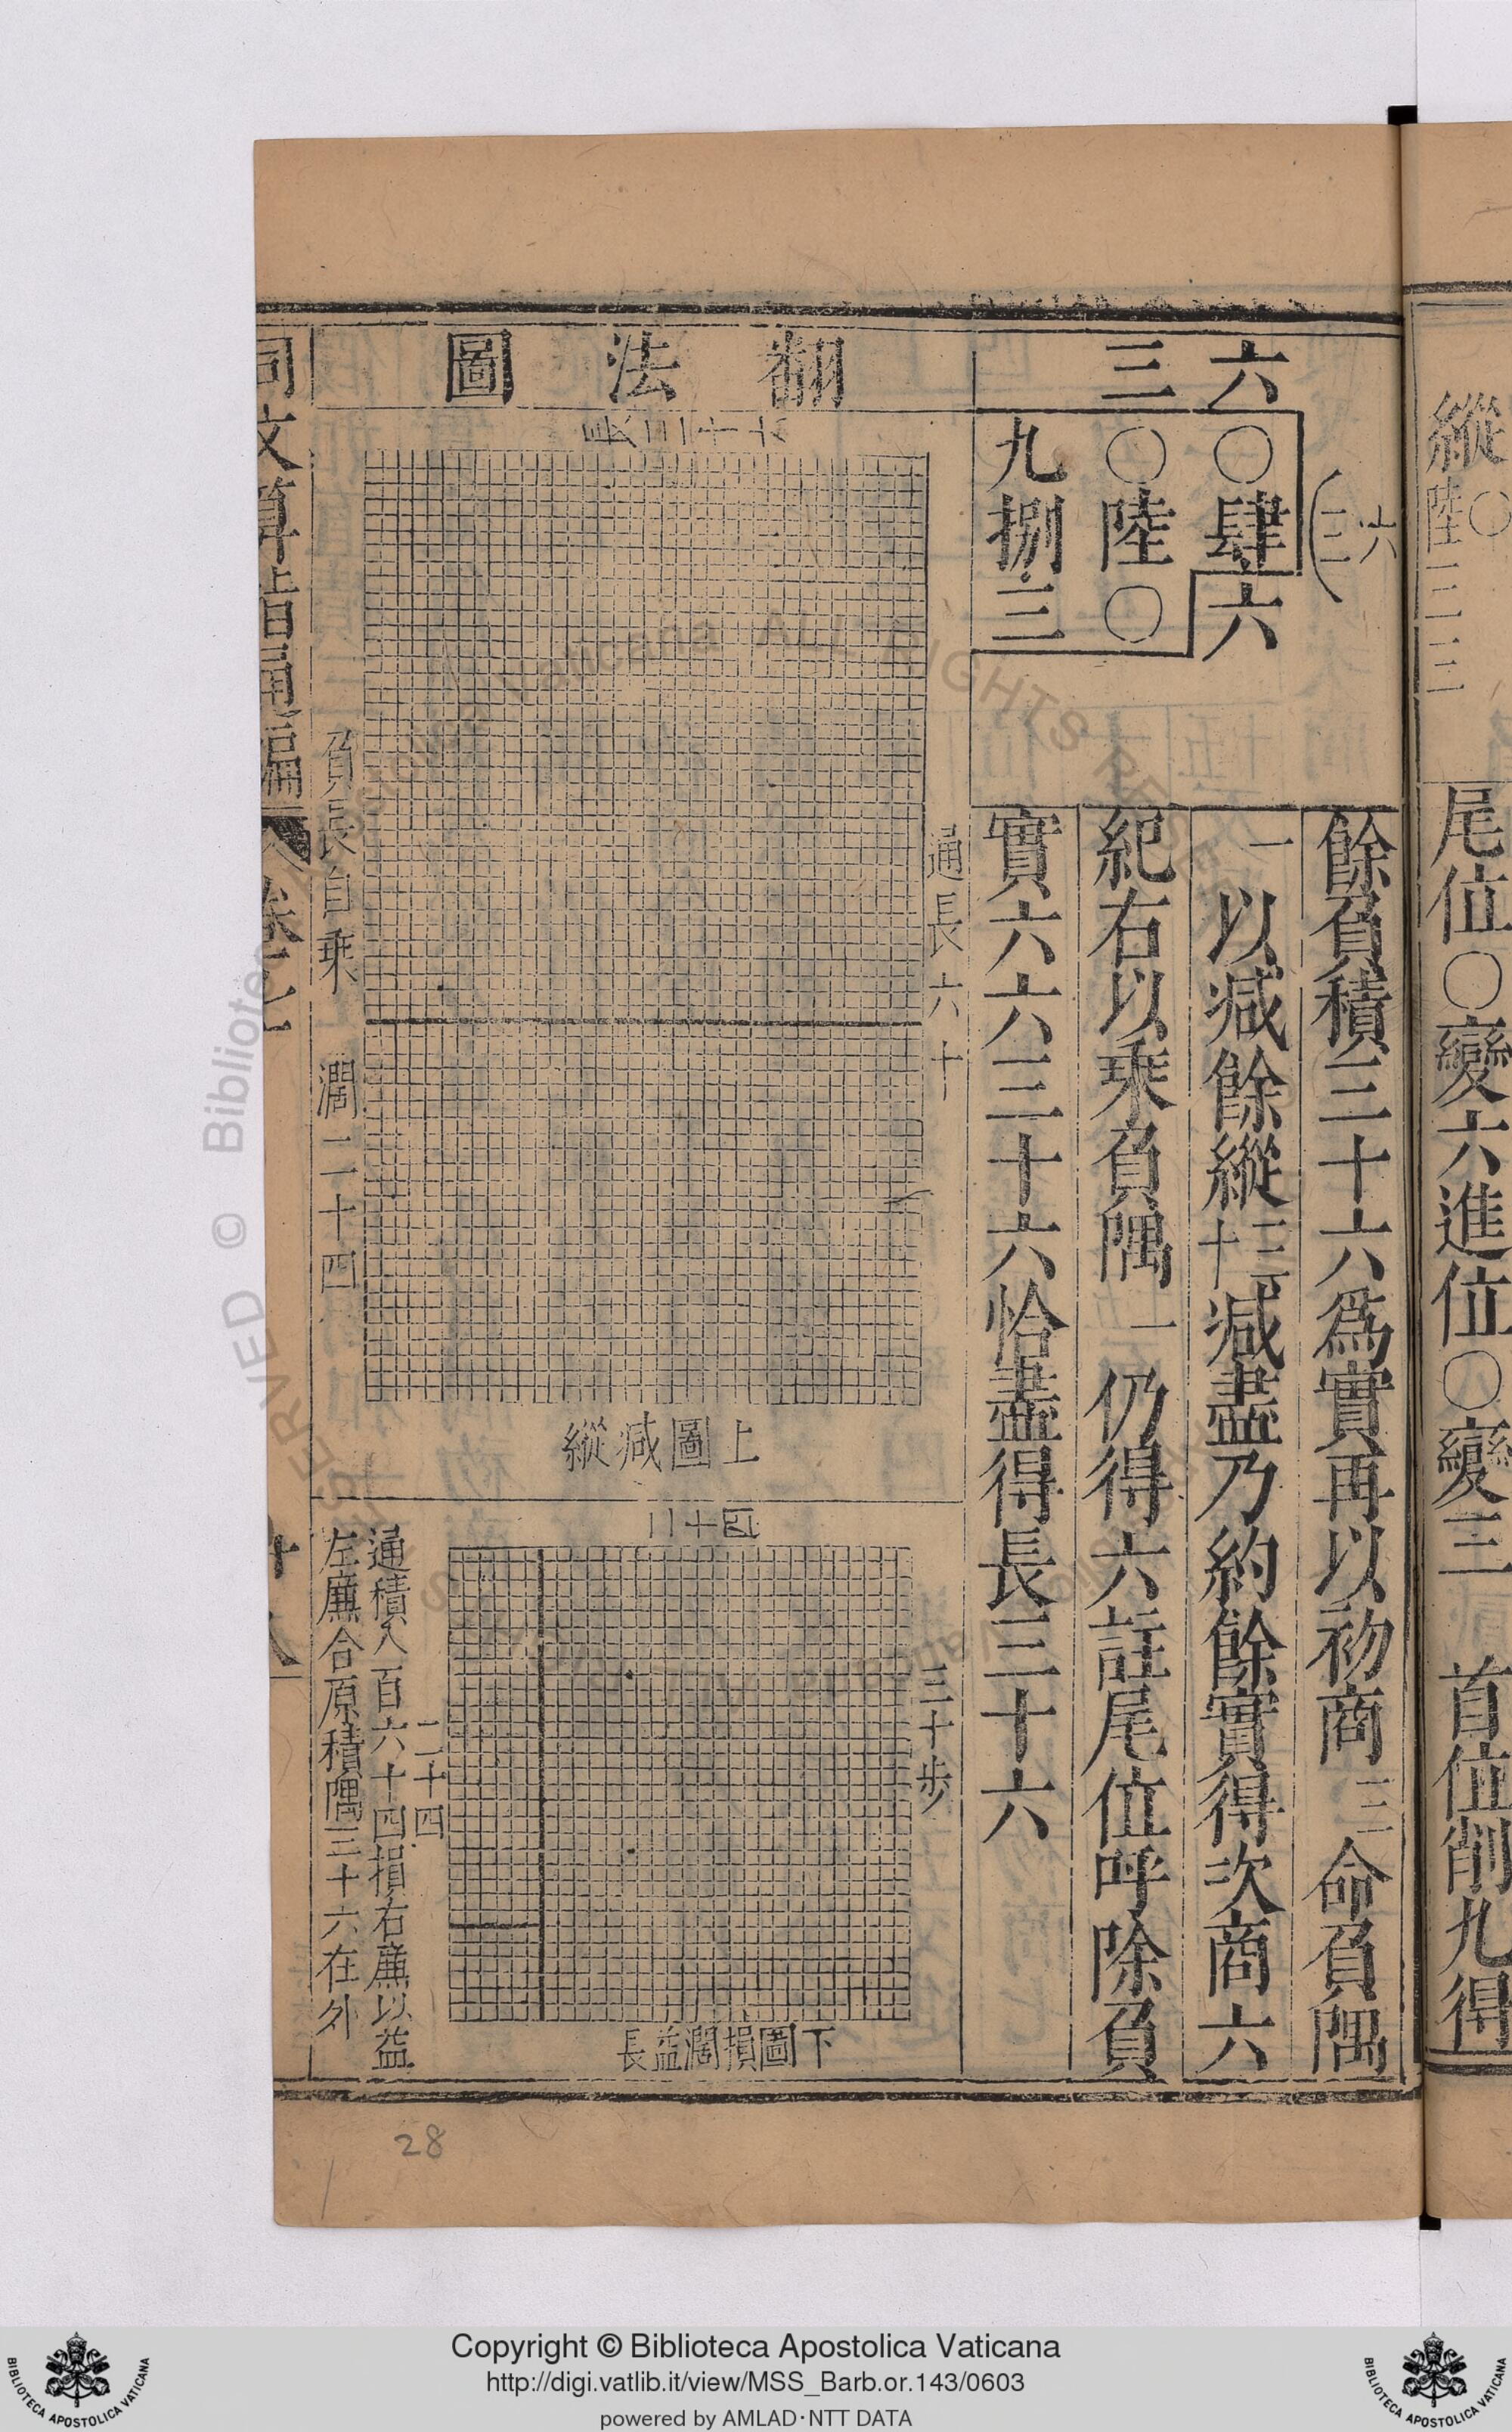 縱〇陸三三
尾位〇變六進位〇變三 首位削九得
六
(三
六〇肆六
三〇陸〇
九捌三
餘負積三十六爲實再以初商三命負隅
一以减餘縱三十减盡乃約餘實得次商六
紀右以乘負隅一仍得六註尾位呼除負
實六六三十六恰盡得長三十六
翻法圖
通長六十
上圖减縱
負長自乘 濶二十四
二十四
三十步
二十四
下圖損濶益長
通積八百六十四損右廉以益
左廉合原積隅三十六在外
同文算指通編 卷七 十八
28
Copyright © Biblioteca Apostolica Vaticana
http://digi.vatlib.it/view/MSS_Barb.or.143/0603
powered by AMLAD·NTT DATA
BIBLIOTECA APOSTOLICA VATICANA
BIBLIOTECA APOSTOLICA VATICANA